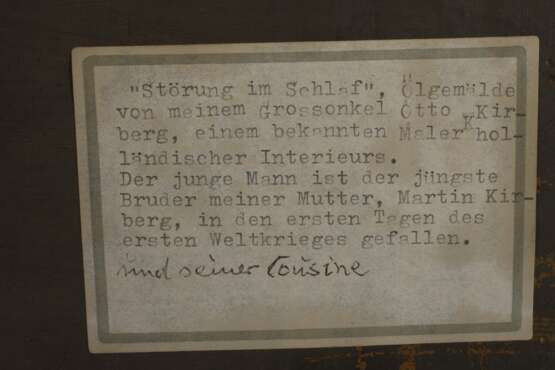 "Störung im Schlaf", Ölgemälde
von meinem Grossonkel Otto Kir-
berg, einem bekannten Maler hol-
ländischer Interieurs.
Der junge Mann ist der jüngste
Bruder meiner Mutter, Martin Kir-
berg, in den ersten Tagen des
ersten Weltkrieges gefallen.
und seiner Cousine